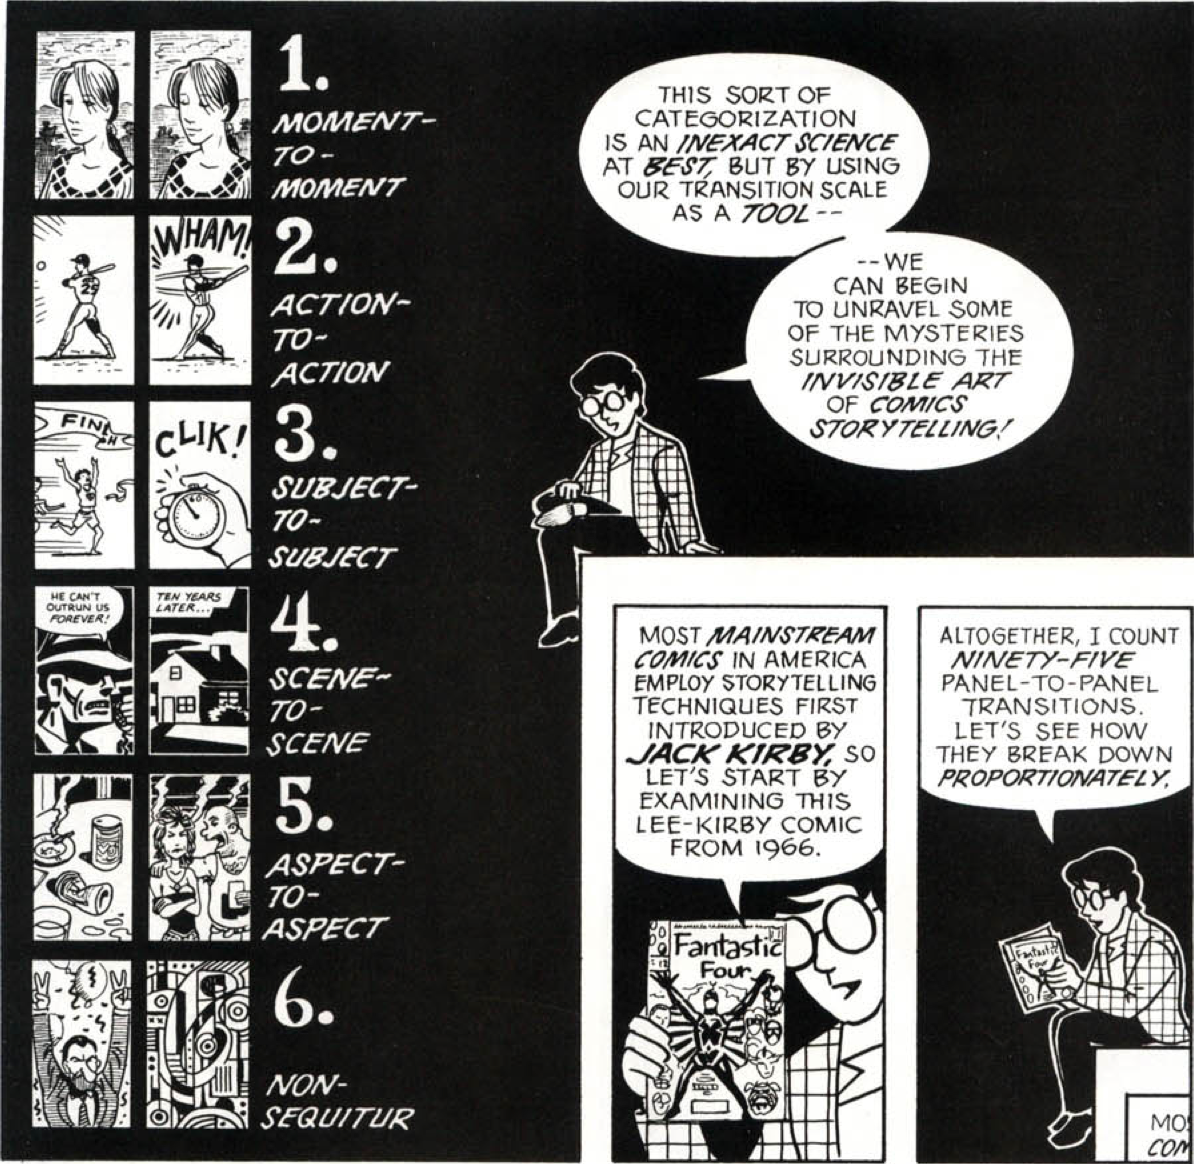 1.
MOMENT-
TO-
MOMENT
WHAM!
2.
ACTION-
TO-
ACTION
FINI
SH
CLIK!
60
3.
SUBJECT-
TO-
SUBJECT
HE CAN'T
OUTRUN US
FOREVER!
TEN YEARS
LATER...
4.
SCENE-
TO-
SCENE
5.
ASPECT-
TO-
ASPECT
6.
NON-
SEQUITUR
THIS SORT OF
CATEGORIZATION
IS AN INEXACT SCIENCE
AT BEST, BUT BY USING
OUR TRANSITION SCALE
AS A TOOL --
-- WE
CAN BEGIN
TO UNRAVEL SOME
OF THE MYSTERIES
SURROUNDING THE
INVISIBLE ART
OF COMICS
STORYTELLING!
MOST MAINSTREAM
COMICS IN AMERICA
EMPLOY STORYTELLING
TECHNIQUES FIRST
INTRODUCED BY
JACK KIRBY, SO
LET'S START BY
EXAMINING THIS
LEE-KIRBY COMIC
FROM 1966.
Fantastic
Four
ALTOGETHER, I COUNT
NINETY-FIVE
PANEL-TO-PANEL
TRANSITIONS.
LET'S SEE HOW
THEY BREAK DOWN
PROPORTIONATELY.
Fantastic
Four
MOS
COM